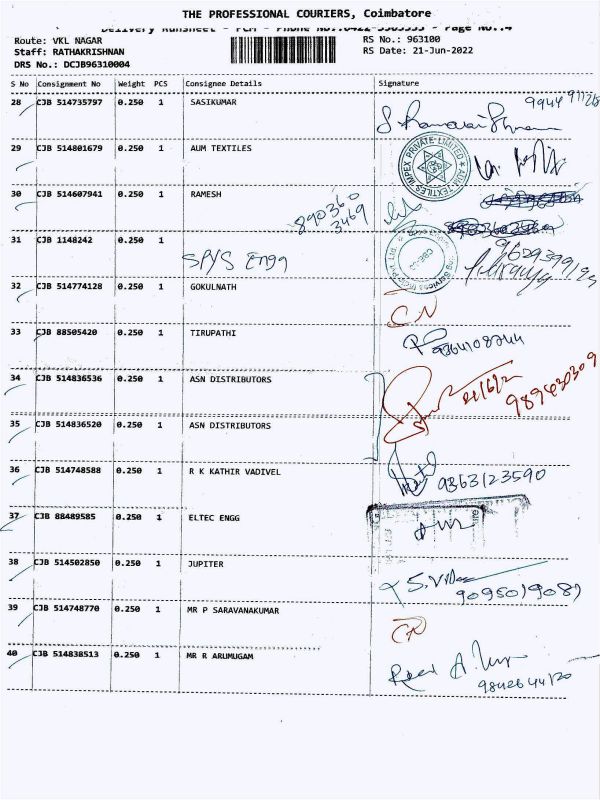 THE PROFESSIONAL COURIERS, Coimbatore
Delivery Runsheet - PCM - Phone No.:0422- - Page No.:4
Route: VKL NAGAR RS No.: 963100
Staff: RATHAKRISHNAN RS Date: 21-Jun-2022
DRS No.: DCJB96310004
S No Consignment No Weight PCS Consignee Details Signature
28 CJB 514735797 0.250 1 SASIKUMAR
29 CJB 514801679 0.250 1 AUM TEXTILES
30 CJB 514607941 0.250 1 RAMESH 890360
3469
31 CJB 1148242 0.250 1
SPYS Engg
32 CJB 514774128 0.250 1 GOKULNATH
CN
33 CJB 88505420 0.250 1 TIRUPATHI
9364108244
34 CJB 514836536 0.250 1 ASN DISTRIBUTORS
21/6/2
989430309
35 CJB 514836520 0.250 1 ASN DISTRIBUTORS
36 CJB 514748588 0.250 1 R K KATHIR VADIVEL
9363123590
37 CJB 88489585 0.250 1 ELTEC ENGG
38 CJB 514502850 0.250 1 JUPITER
9095019081
39 CJB 514748770 0.250 1 MR P SARAVANAKUMAR
CN
40 CJB 514838513 0.250 1 MR R ARUMUGAM
9842644120